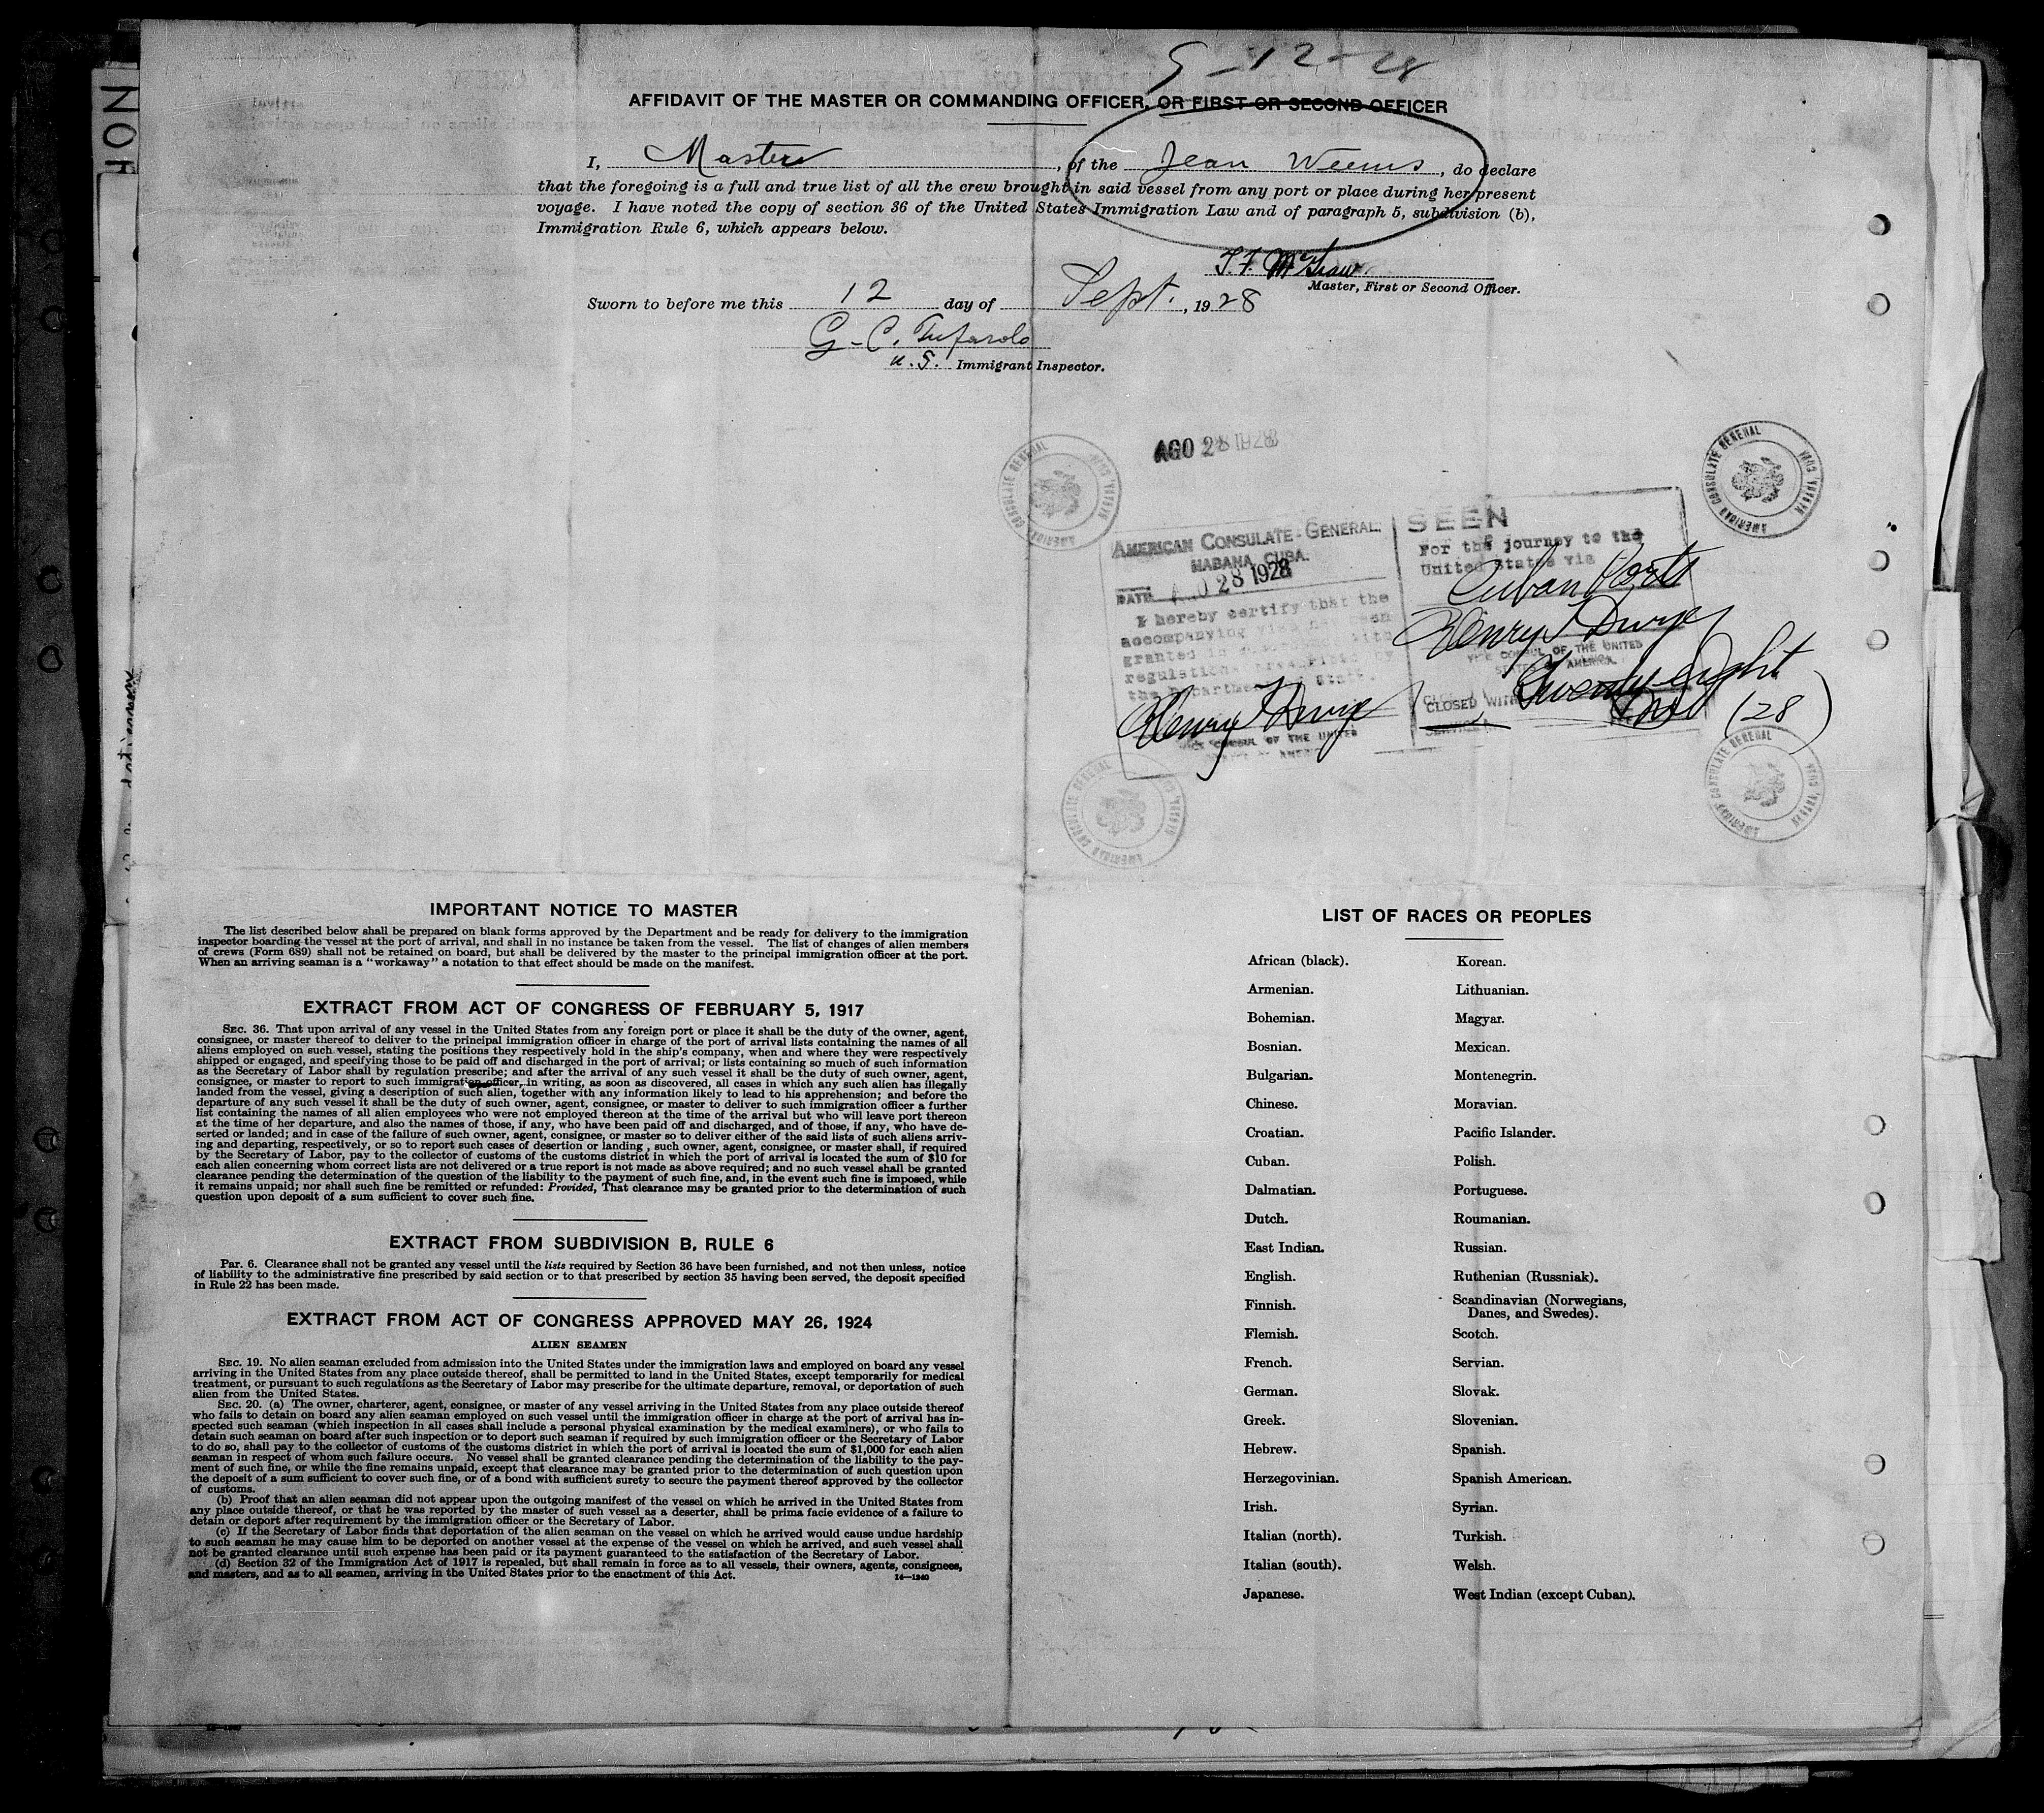 9-12-28
AFFIDAVIT OF THE MASTER OR COMMANDING OFFICER, OR FIRST OR SECOND OFFICER
I, Master, of the Jean Weems, do declare
that the foregoing is a full and true list of all the crew brought in said vessel from any port or place during her present
voyage. I have noted the copy of section 36 of the United States Immigration Law and of paragraph 5, subdivision (b),
Immigration Rule 6, which appears below.
T. F. McGraw
Master, First or Second Officer.
Sworn to before me this 12 day of Sept., 1928
G. C. Tufarolo
U.S. Immigrant Inspector.
AGO 28 1928
AMERICAN CONSULATE GENERAL
HABANA, CUBA
AMERICAN CONSULATE GENERAL
HABANA, CUBA
AMERICAN CONSULATE-GENERAL.
HABANA, CUBA.
DATE AGO 28 1928
I hereby certify that the
accompanying visa has been
granted in accordance with
regulations prescribed by
the Department of State.
Henry T Dwyer
VICE CONSUL OF THE UNITED
STATES OF AMERICA
SEEN
For the journey to the
United States via
Cuban Ports
Henry T Dwyer
VICE CONSUL OF THE UNITED
STATES OF AMERICA.
CLOSED WITH Twenty eight
(28)
AMERICAN CONSULATE GENERAL
HABANA, CUBA
AMERICAN CONSULATE GENERAL
HABANA, CUBA
IMPORTANT NOTICE TO MASTER
The list described below shall be prepared on blank forms approved by the Department and be ready for delivery to the immigration
inspector boarding the vessel at the port of arrival, and shall in no instance be taken from the vessel. The list of changes of alien members
of crews (Form 689) shall not be retained on board, but shall be delivered by the master to the principal immigration officer at the port.
When an arriving seaman is a "workaway" a notation to that effect should be made on the manifest.
EXTRACT FROM ACT OF CONGRESS OF FEBRUARY 5, 1917
SEC. 36. That upon arrival of any vessel in the United States from any foreign port or place it shall be the duty of the owner, agent,
consignee, or master thereof to deliver to the principal immigration officer in charge of the port of arrival lists containing the names of all
aliens employed on such vessel, stating the positions they respectively hold in the ship's company, when and where they were respectively
shipped or engaged, and specifying those to be paid off and discharged in the port of arrival; or lists containing so much of such information
as the Secretary of Labor shall by regulation prescribe; and after the arrival of any such vessel it shall be the duty of such owner, agent,
consignee, or master to report to such immigration officer, in writing, as soon as discovered, all cases in which any such alien has illegally
landed from the vessel, giving a description of such alien, together with any information likely to lead to his apprehension; and before the
departure of any such vessel it shall be the duty of such owner, agent, consignee, or master to deliver to such immigration officer a further
list containing the names of all alien employees who were not employed thereon at the time of the arrival but who will leave port thereon
at the time of her departure, and also the names of those, if any, who have been paid off and discharged, and of those, if any, who have de-
serted or landed; and in case of the failure of such owner, agent, consignee, or master so to deliver either of the said lists of such aliens arriv-
ing and departing, respectively, or so to report such cases of desertion or landing , such owner, agent, consignee, or master shall, if required
by the Secretary of Labor, pay to the collector of customs of the customs district in which the port of arrival is located the sum of $10 for
each alien concerning whom correct lists are not delivered or a true report is not made as above required; and no such vessel shall be granted
clearance pending the determination of the question of the liability to the payment of such fine, and, in the event such fine is imposed, while
it remains unpaid; nor shall such fine be remitted or refunded: Provided, That clearance may be granted prior to the determination of such
question upon deposit of a sum sufficient to cover such fine.
EXTRACT FROM SUBDIVISION B, RULE 6
Par. 6. Clearance shall not be granted any vessel until the lists required by Section 36 have been furnished, and not then unless, notice
of liability to the administrative fine prescribed by said section or to that prescribed by section 35 having been served, the deposit specified
in Rule 22 has been made.
EXTRACT FROM ACT OF CONGRESS APPROVED MAY 26, 1924
ALIEN SEAMEN
SEC. 19. No alien seaman excluded from admission into the United States under the immigration laws and employed on board any vessel
arriving in the United States from any place outside thereof, shall be permitted to land in the United States, except temporarily for medical
treatment, or pursuant to such regulations as the Secretary of Labor may prescribe for the ultimate departure, removal, or deportation of such
alien from the United States.
SEC. 20. (a) The owner, charterer, agent, consignee, or master of any vessel arriving in the United States from any place outside thereof
who fails to detain on board any alien seaman employed on such vessel until the immigration officer in charge at the port of arrival has in-
spected such seaman (which inspection in all cases shall include a personal physical examination by the medical examiners), or who fails to
detain such seaman on board after such inspection or to deport such seaman if required by such immigration officer or the Secretary of Labor
to do so, shall pay to the collector of customs of the customs district in which the port of arrival is located the sum of $1,000 for each alien
seaman in respect of whom such failure occurs. No vessel shall be granted clearance pending the determination of the liability to the pay-
ment of such fine, or while the fine remains unpaid, except that clearance may be granted prior to the determination of such question upon
the deposit of a sum sufficient to cover such fine, or of a bond with sufficient surety to secure the payment thereof approved by the collector
of customs.
(b) Proof that an alien seaman did not appear upon the outgoing manifest of the vessel on which he arrived in the United States from
any place outside thereof, or that he was reported by the master of such vessel as a deserter, shall be prima facie evidence of a failure to
detain or deport after requirement by the immigration officer or the Secretary of Labor.
(c) If the Secretary of Labor finds that deportation of the alien seaman on the vessel on which he arrived would cause undue hardship
to such seaman he may cause him to be deported on another vessel at the expense of the vessel on which he arrived, and such vessel shall
not be granted clearance until such expense has been paid or its payment guaranteed to the satisfaction of the Secretary of Labor.
(d) Section 32 of the Immigration Act of 1917 is repealed, but shall remain in force as to all vessels, their owners, agents, consignees,
and masters, and as to all seamen, arriving in the United States prior to the enactment of this Act.
14—1240
LIST OF RACES OR PEOPLES
African (black). Korean.
Armenian. Lithuanian.
Bohemian. Magyar.
Bosnian. Mexican.
Bulgarian. Montenegrin.
Chinese. Moravian.
Croatian. Pacific Islander.
Cuban. Polish.
Dalmatian. Portuguese.
Dutch. Roumanian.
East Indian. Russian.
English. Ruthenian (Russniak).
Finnish. Scandinavian (Norwegians,
Danes, and Swedes).
Flemish. Scotch.
French. Servian.
German. Slovak.
Greek. Slovenian.
Hebrew. Spanish.
Herzegovinian. Spanish American.
Irish. Syrian.
Italian (north). Turkish.
Italian (south). Welsh.
Japanese. West Indian (except Cuban).